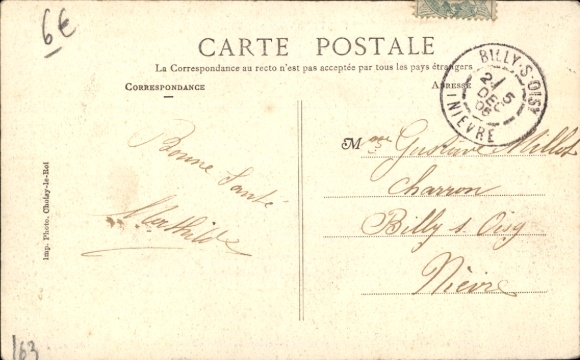 6€
CARTE POSTALE
La Correspondance au recto n'est pas acceptée par tous les pays étrangers
CORRESPONDANCE
ADRESSE
BILLY-S-OISY
2 5
DEC
06
NIEVRE
Bonne Santé
Mathilde
Mme Gustave Millot
Charron
Billy s. Oisy
Nièvre
Imp. Photo. Choisy-le-Roi
163